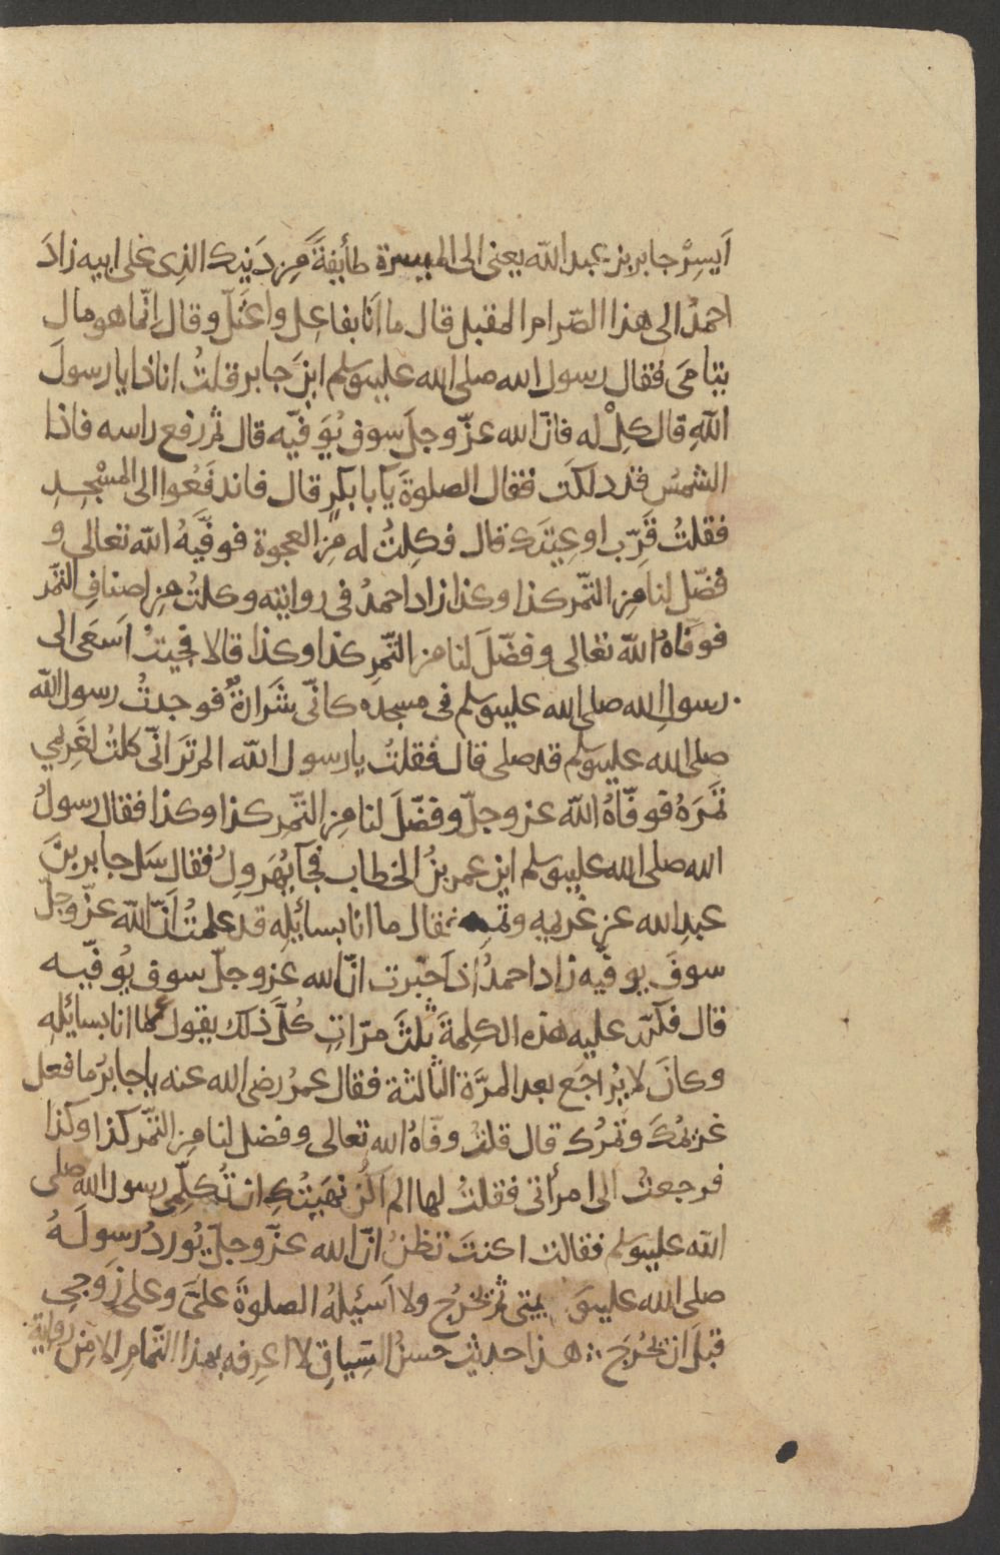 اَيسِرْ جابر بن عبد الله يعنى الى الميسرة طأيفةً مِن دَينِك الذِى على ابيه زادَ
احمدُ الى هذا الصّرام المقبل قال ما اَنا بفاعِل واعتَلّ وقال انّما هو مال
يتامَى فقال رسول الله صلى الله عليه وسلم اينَ جابر قلتُ انا ذا يا رسول
اللهِ قال كِلْ له فانّ الله عزّ وجلّ سوف يُوَفّيه قال ثم رفع راسه فاذا
الشمسُ قد دلكَت فقال الصلوةَ يآبا بكرٍ قال فاندفَعُوا الى المسْجِدِ
فقلتُ قَرِّب اوعِيتَك قال فكِلتُ له مِن العجوة فوفّيَهُ الله تعالى و
فضّل لنا مِن التّمر كذا وكذا زاد احمدُ فى روايته وكلتُ مِن اصنافِ التمْر
فوفّاهُ الله تعالى وفضّلَ لنا من التّمرِ كذا وكذا قالا فجيتْ اَسعَى الى
رسولِ الله صلى الله عليه وسلم فى مسجدِه كانّى شَرارةٌ فوجدتُ رسول الله
صلى الله عليه وسلم قد صلى قال فقلتُ يا رسول الله الم ترَ انّى كلتُ لغَرِيمي
تَمَرَهُ فوفّاهُ الله عز وجلّ وفضّلَ لنا مِن التّمرِ كذا وكذا فقال رسولُ
الله صلى الله عليه وسلم اين عمر بنُ الخطاب فجآ يُهَرولُ فقال سَل جابر بنَ
عبدِ الله عن غريمِه وتمرِه فقال ما انا بسائِلِه قد علمتُ اَنّ الله عزّ وجلّ
سوفَ يوفّيه زاد احمدُ اذ اَخبَرت انّ الله عز وجلّ سوف يُوفّيه
قال فكرّر عليه هذه الكلِمةَ ثلثَ مرّاتٍ كُلَّ ذلك يقول ما انا بسائِلِه
وكانَ لا يُراجَع بعد المرَّة الثالثة فقال عمرُ رضى الله عنه يا جابرُ ما فعل
غريمُكَ وتمرُك قال قلتُ وفّاهُ الله تعالى وفضل لنا مِن التّمر كذا وكذا
فرجعتُ الى امرأتى فقلتُ لها الم اَكُن نهَيتُكِ ان تُكلّمى رسول الله صلى
الله عليه وسلم فقالت اكنتَ تظنُ انّ الله عزّ وجلّ يُوردُ رسولَهُ
صلى الله عليه و بيتى ثم يخرُج ولا اَسئِلهُ الصلوةَ علىَّ وعلى زَوجِى
قبلَ ان يخرُجَ ∴ هذا حديث حسنُ السّياقِ لا اعرِفه بهذا التّمام الا مِن رواية